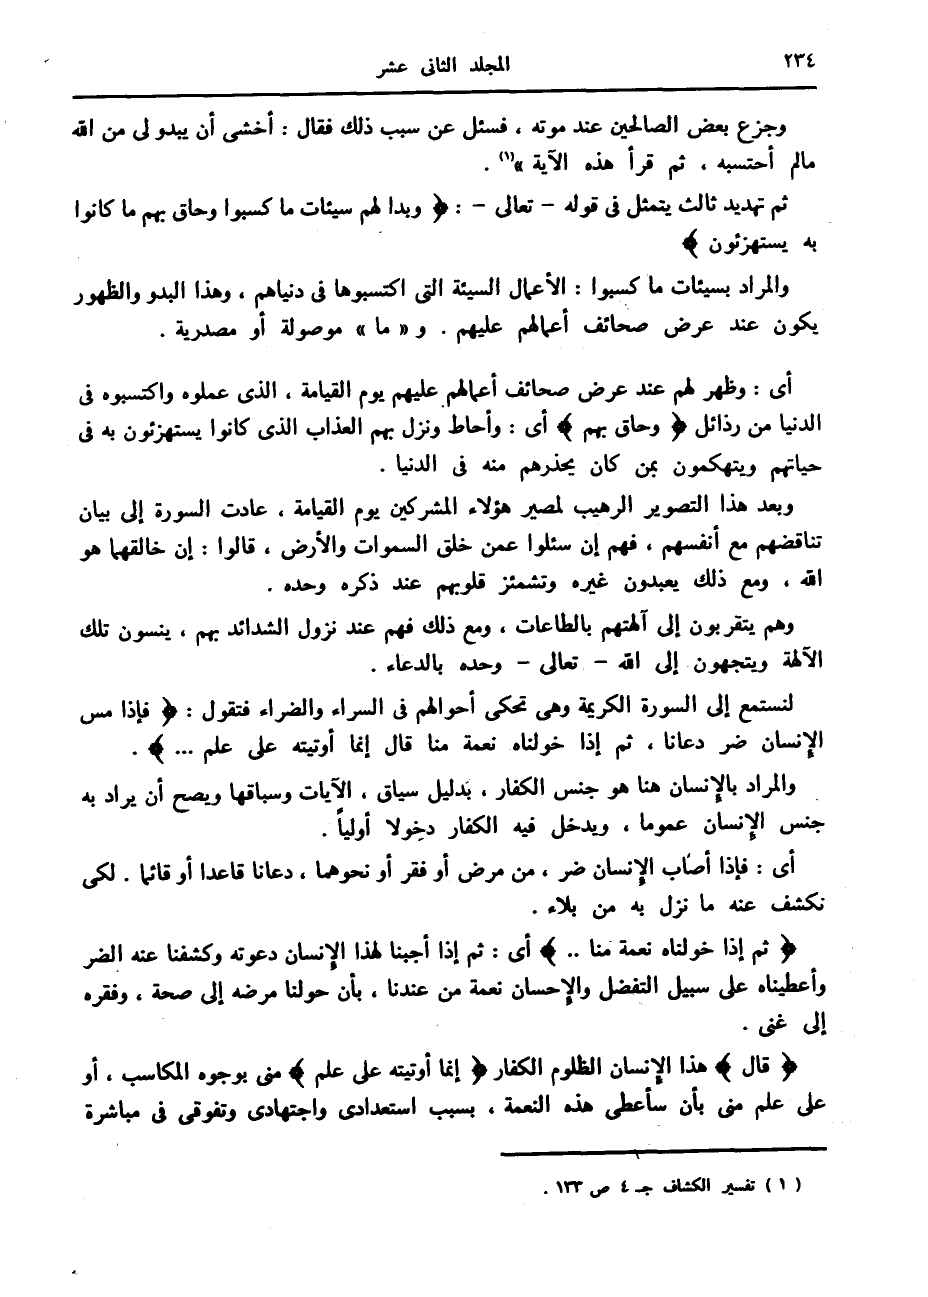 ٢٣٤
المجلد الثانى عشر
وجزع بعض الصالحين عند موته ، فسئل عن سبب ذلك فقال : أخشى أن يبدو لى من الله
مالم أحتسبه ، ثم قرأ هذه الآية »(١) .
ثم تهديد ثالث يتمثل فى قوله – تعالى – : ﴿ وبدا لهم سيئات ما كسبوا وحاق بهم ما كانوا
به يستهزئون ﴾
والمراد بسيئات ما كسبوا : الأعمال السيئة التى اكتسبوها فى دنياهم ، وهذا البدو والظهور
يكون عند عرض صحائف أعمالهم عليهم . و « ما » موصولة أو مصدرية .
أى : وظهر لهم عند عرض صحائف أعمالهم عليهم يوم القيامة ، الذى عملوه واكتسبوه فى
الدنيا من رذائل ﴿ وحاق بهم ﴾ أى : وأحاط ونزل بهم العذاب الذى كانوا يستهزئون به فى
حياتهم ويتهكمون بمن كان يحذرهم منه فى الدنيا .
وبعد هذا التصوير الرهيب لمصير هؤلاء المشركين يوم القيامة ، عادت السورة إلى بيان
تناقضهم مع أنفسهم ، فهم إن سئلوا عمن خلق السموات والأرض ، قالوا : إن خالقهما هو
الله ، ومع ذلك يعبدون غيره وتشمئز قلوبهم عند ذكره وحده .
وهم يتقربون إلى آلهتهم بالطاعات ، ومع ذلك فهم عند نزول الشدائد بهم ، ينسون تلك
الآلهة ويتجهون إلى الله – تعالى – وحده بالدعاء .
لنستمع إلى السورة الكريمة وهى تحكى أحوالهم فى السراء والضراء فتقول : ﴿ فإذا مس
الإنسان ضر دعانا ، ثم إذا خولناه نعمة منا قال إنما أوتيته على علم ... ﴾ .
والمراد بالإنسان هنا هو جنس الكفار ، بدليل سياق ، الآيات وسباقها ويصح أن يراد به
جنس الإنسان عموما ، ويدخل فيه الكفار دخولا أولياً .
أى : فإذا أصاب الإنسان ضر ، من مرض أو فقر أو نحوهما ، دعانا قاعدا أو قائما . لكى
نكشف عنه ما نزل به من بلاء .
﴿ ثم إذا خولناه نعمة منا .. ﴾ أى : ثم إذا أجبنا لهذا الإنسان دعوته وكشفنا عنه الضر
وأعطيناه على سبيل التفضل والإحسان نعمة من عندنا ، بأن حولنا مرضه إلى صحة ، وفقره
إلى غنى .
﴿ قال ﴾ هذا الإنسان الظلوم الكفار ﴿ إنما أوتيته على علم ﴾ منى بوجوه المكاسب ، أو
على علم منى بأن سأعطى هذه النعمة ، بسبب استعدادى واجتهادى وتفوقى فى مباشرة
( ١ ) تفسير الكشاف جـ ٤ ص ١٣٣ .